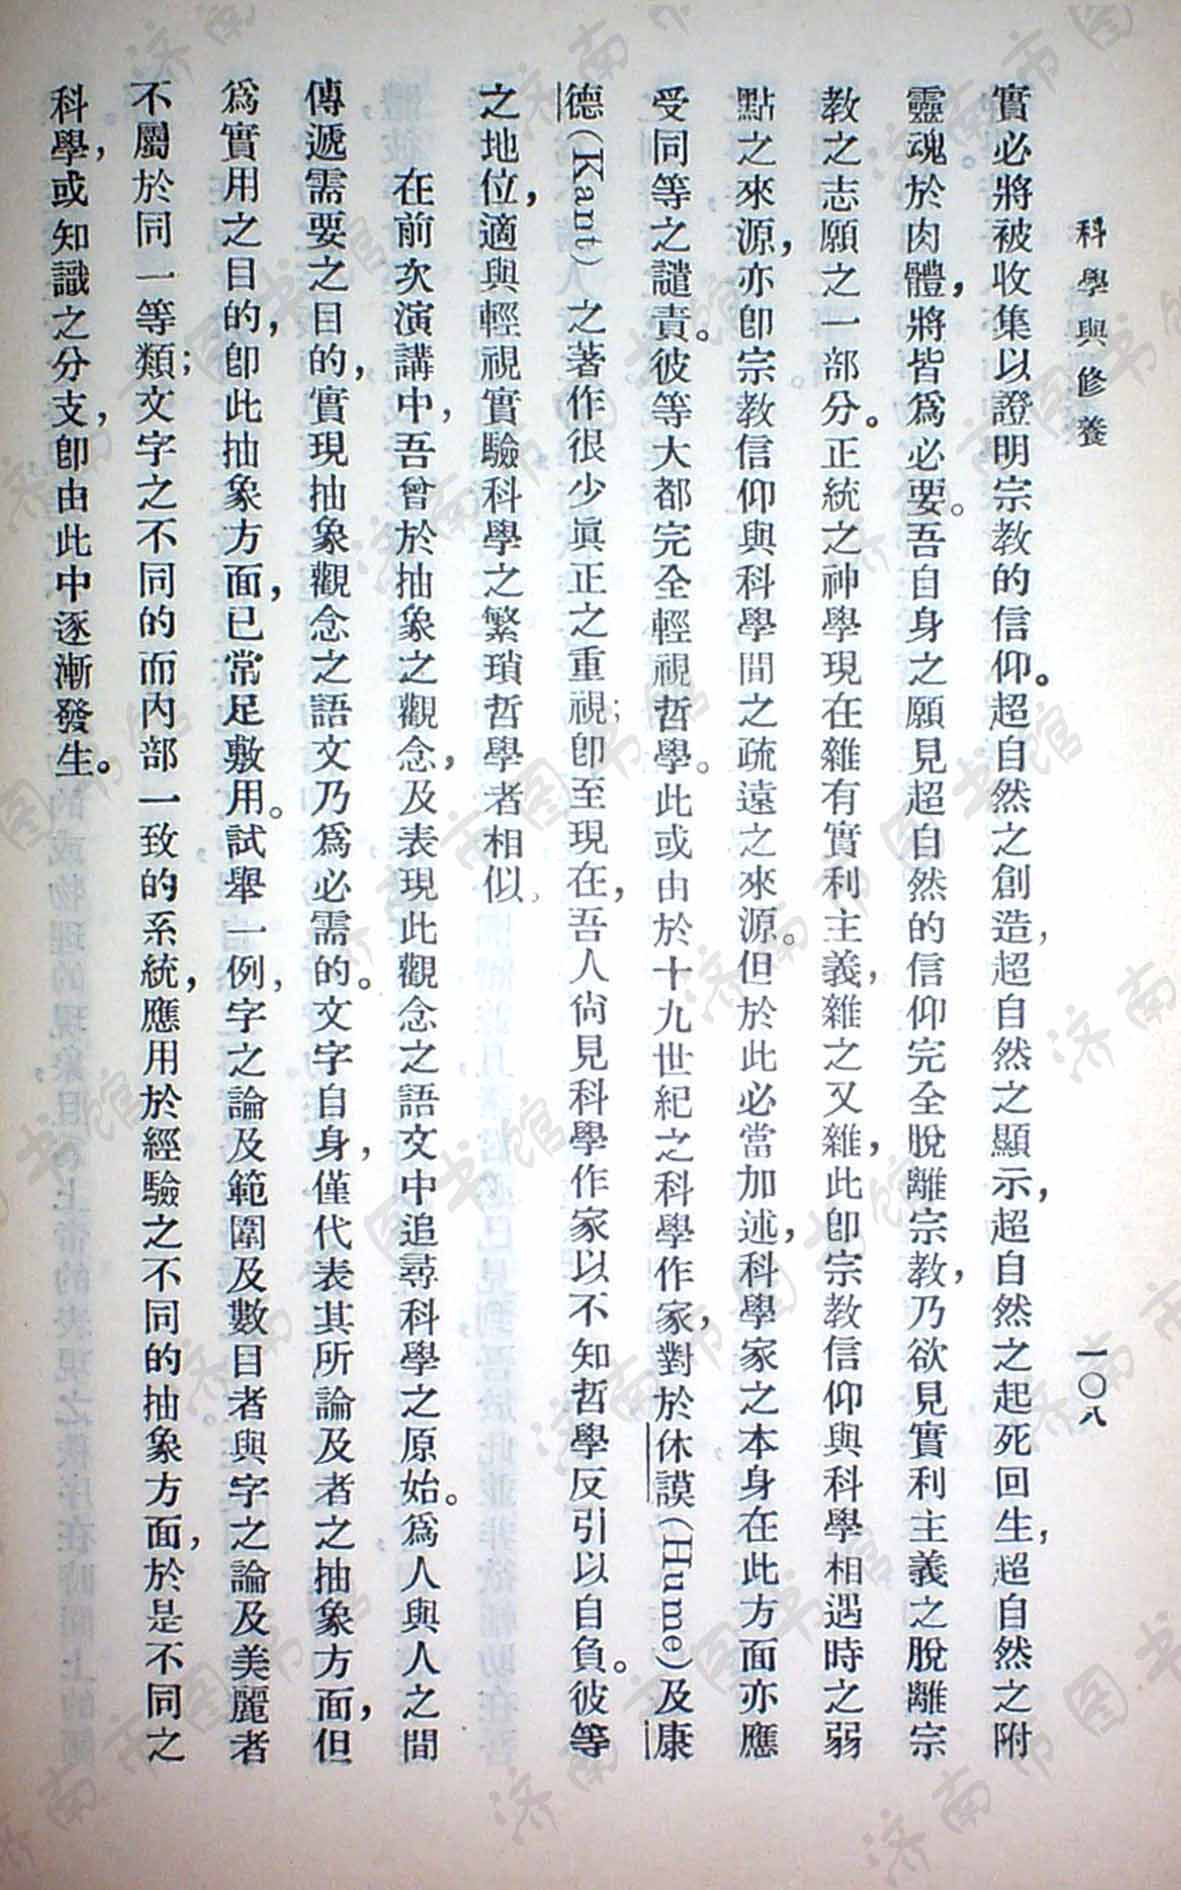 科學與修養
一〇八
實必將被收集以證明宗教的信仰。超自然之創造，超自然之顯示，超自然之起死回生，超自然之附
靈魂於肉體，將皆爲必要。吾自身之願見超自然的信仰完全脫離宗教，乃欲見實利主義之脫離宗
教之志願之一部分。正統之神學現在雜有實利主義，雜之又雜，此卽宗教信仰與科學相遇時之弱
點之來源，亦卽宗教信仰與科學間之疏遠之來源。但於此必當加述，科學家之本身在此方面亦應
受同等之譴責。彼等大都完全輕視哲學。此或由於十九世紀之科學作家，對於休謨（Hume）及康
德（Kant）之著作很少眞正之重視；卽至現在，吾人尙見科學作家以不知哲學反引以自負。彼等
之地位，適與輕視實驗科學之繁瑣哲學者相似。
在前次演講中，吾曾於抽象之觀念，及表現此觀念之語文中追尋科學之原始。爲人與人之間
傳遞需要之目的，實現抽象觀念之語文乃爲必需的。文字自身，僅代表其所論及者之抽象方面，但
爲實用之目的，卽此抽象方面，已常足敷用。試舉一例，字之論及範圍及數目者與字之論及美麗者
不屬於同一等類；文字之不同的而內部一致的系統，應用於經驗之不同的抽象方面，於是不同之
科學，或知識之分支，卽由此中逐漸發生。
济南市图书馆